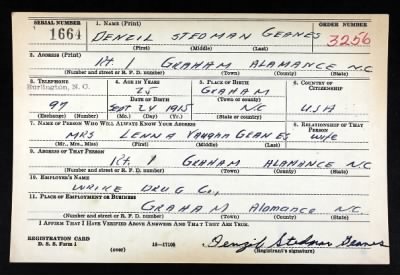 SERIAL NUMBER 1. NAME (Print) ORDER NUMBER
1664 DENZIL STEDMAN GEANES 3256
(First) (Middle) (Last)
2. ADDRESS (Print)
Rt. 1 GRAHAM ALAMANCE N.C
(Number and street or R. F. D. number) (Town) (County) (State)
3. TELEPHONE 4. AGE IN YEARS 5. PLACE OF BIRTH 6. COUNTRY OF CITIZENSHIP
Burlington, N.C. 25 GRAHAM
DATE OF BIRTH (Town or county)
97 Sept 24 1915 NC USA
(Exchange) (Number) (Mo.) (Day) (Yr.) (State or country)
7. NAME OF PERSON WHO WILL ALWAYS KNOW YOUR ADDRESS 8. RELATIONSHIP OF THAT PERSON
MRS LENNA VAUGHN GEANES Wife
(Mr., Mrs., Miss) (First) (Middle) (Last)
9. ADDRESS OF THAT PERSON
Rt. 1 GRAHAM ALAMANCE N.C
(Number and street or R. F. D. number) (Town) (County) (State)
10. EMPLOYER'S NAME
DRUG Co.,
11. PLACE OF EMPLOYMENT OR BUSINESS
GRAHAM Alamance NC.
(Number and street or R. F. D. number) (Town) (County) (State)
I AFFIRM THAT I HAVE VERIFIED ABOVE ANSWERS AND THAT THEY ARE TRUE.
REGISTRATION CARD
D. S. S. Form 1 (over) 16-17105 Denzil Stedman Geanes
(Registrant's signature)